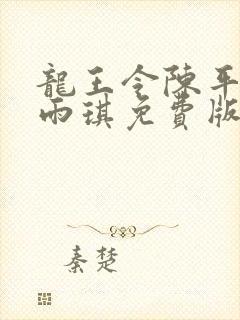 龍王令陳平
雨琪免費版
秦楚